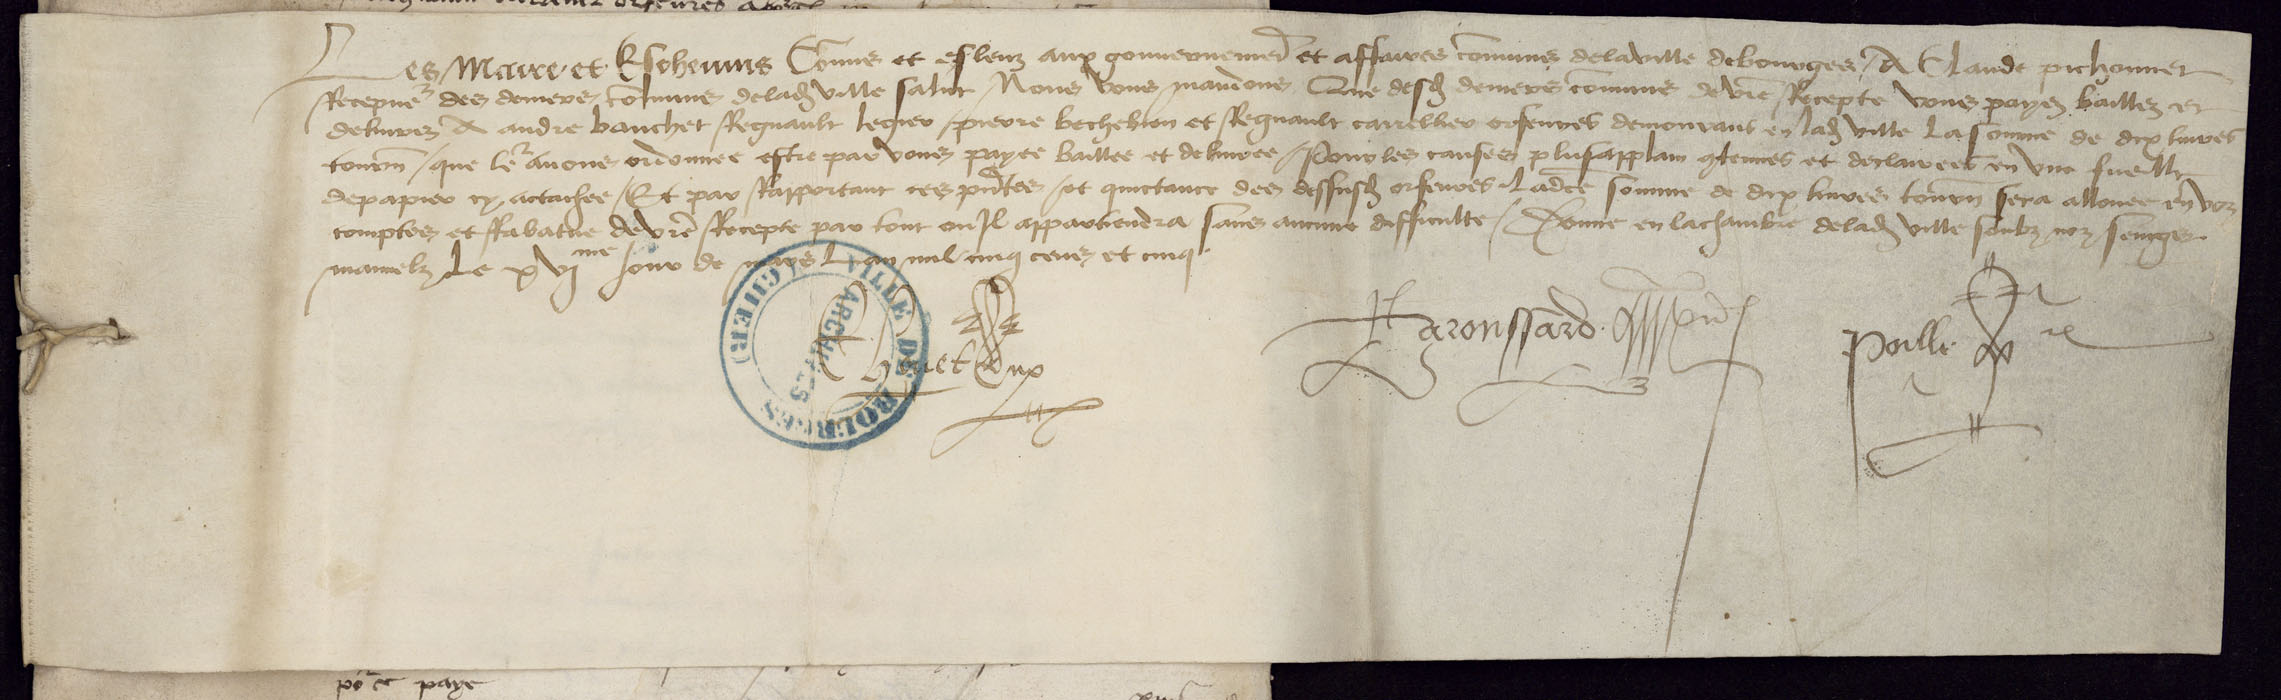 Les Maire et Eschevins Commis et esleuz aux gouvernement et affaires communs de la ville de bourges A Claude pichonnet
Recepveur des deniers communs de lad ville salut Nous vous mandons Que desd deniers communs de vre Recepte vous payez baillez et
delivrez A andre bauchet Regnault legier pierre bechebien et Regnault carrellier orfevres demourans en lad ville La somme de dix livres
tournois que leur avons ordonnee estre par vous payee baillee et delivree Pour les causes plus applain contenues et declairees en une fueille
de papier cy actachee Et par Rapportant ces pntes et quictance des dessusd orfevres Ladicte somme de dix livres tournois sera allouee en voz
comptes et Rabatue de vre Recepte par tout ou Il appartiendra sans aucune difficulte Donne en la chambre de lad ville soubz noz seings
manuelz Le xvime Jour de mars Lan mil cinq cens et cinq
VILLE DE BOURGES (CHER)
ARCHIVES
Poille
por ce paye